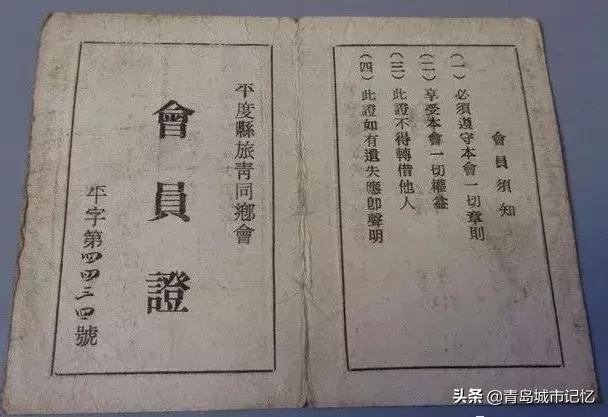 會員須知
(一) 必須遵守本會一切章則
(二) 享受本會一切權益
(三) 此證不得轉借他人
(四) 此證如有遺失應卽聲明
平度縣旅青同鄉會
會員證
平字第四四二四號
头条 @青岛城市记忆